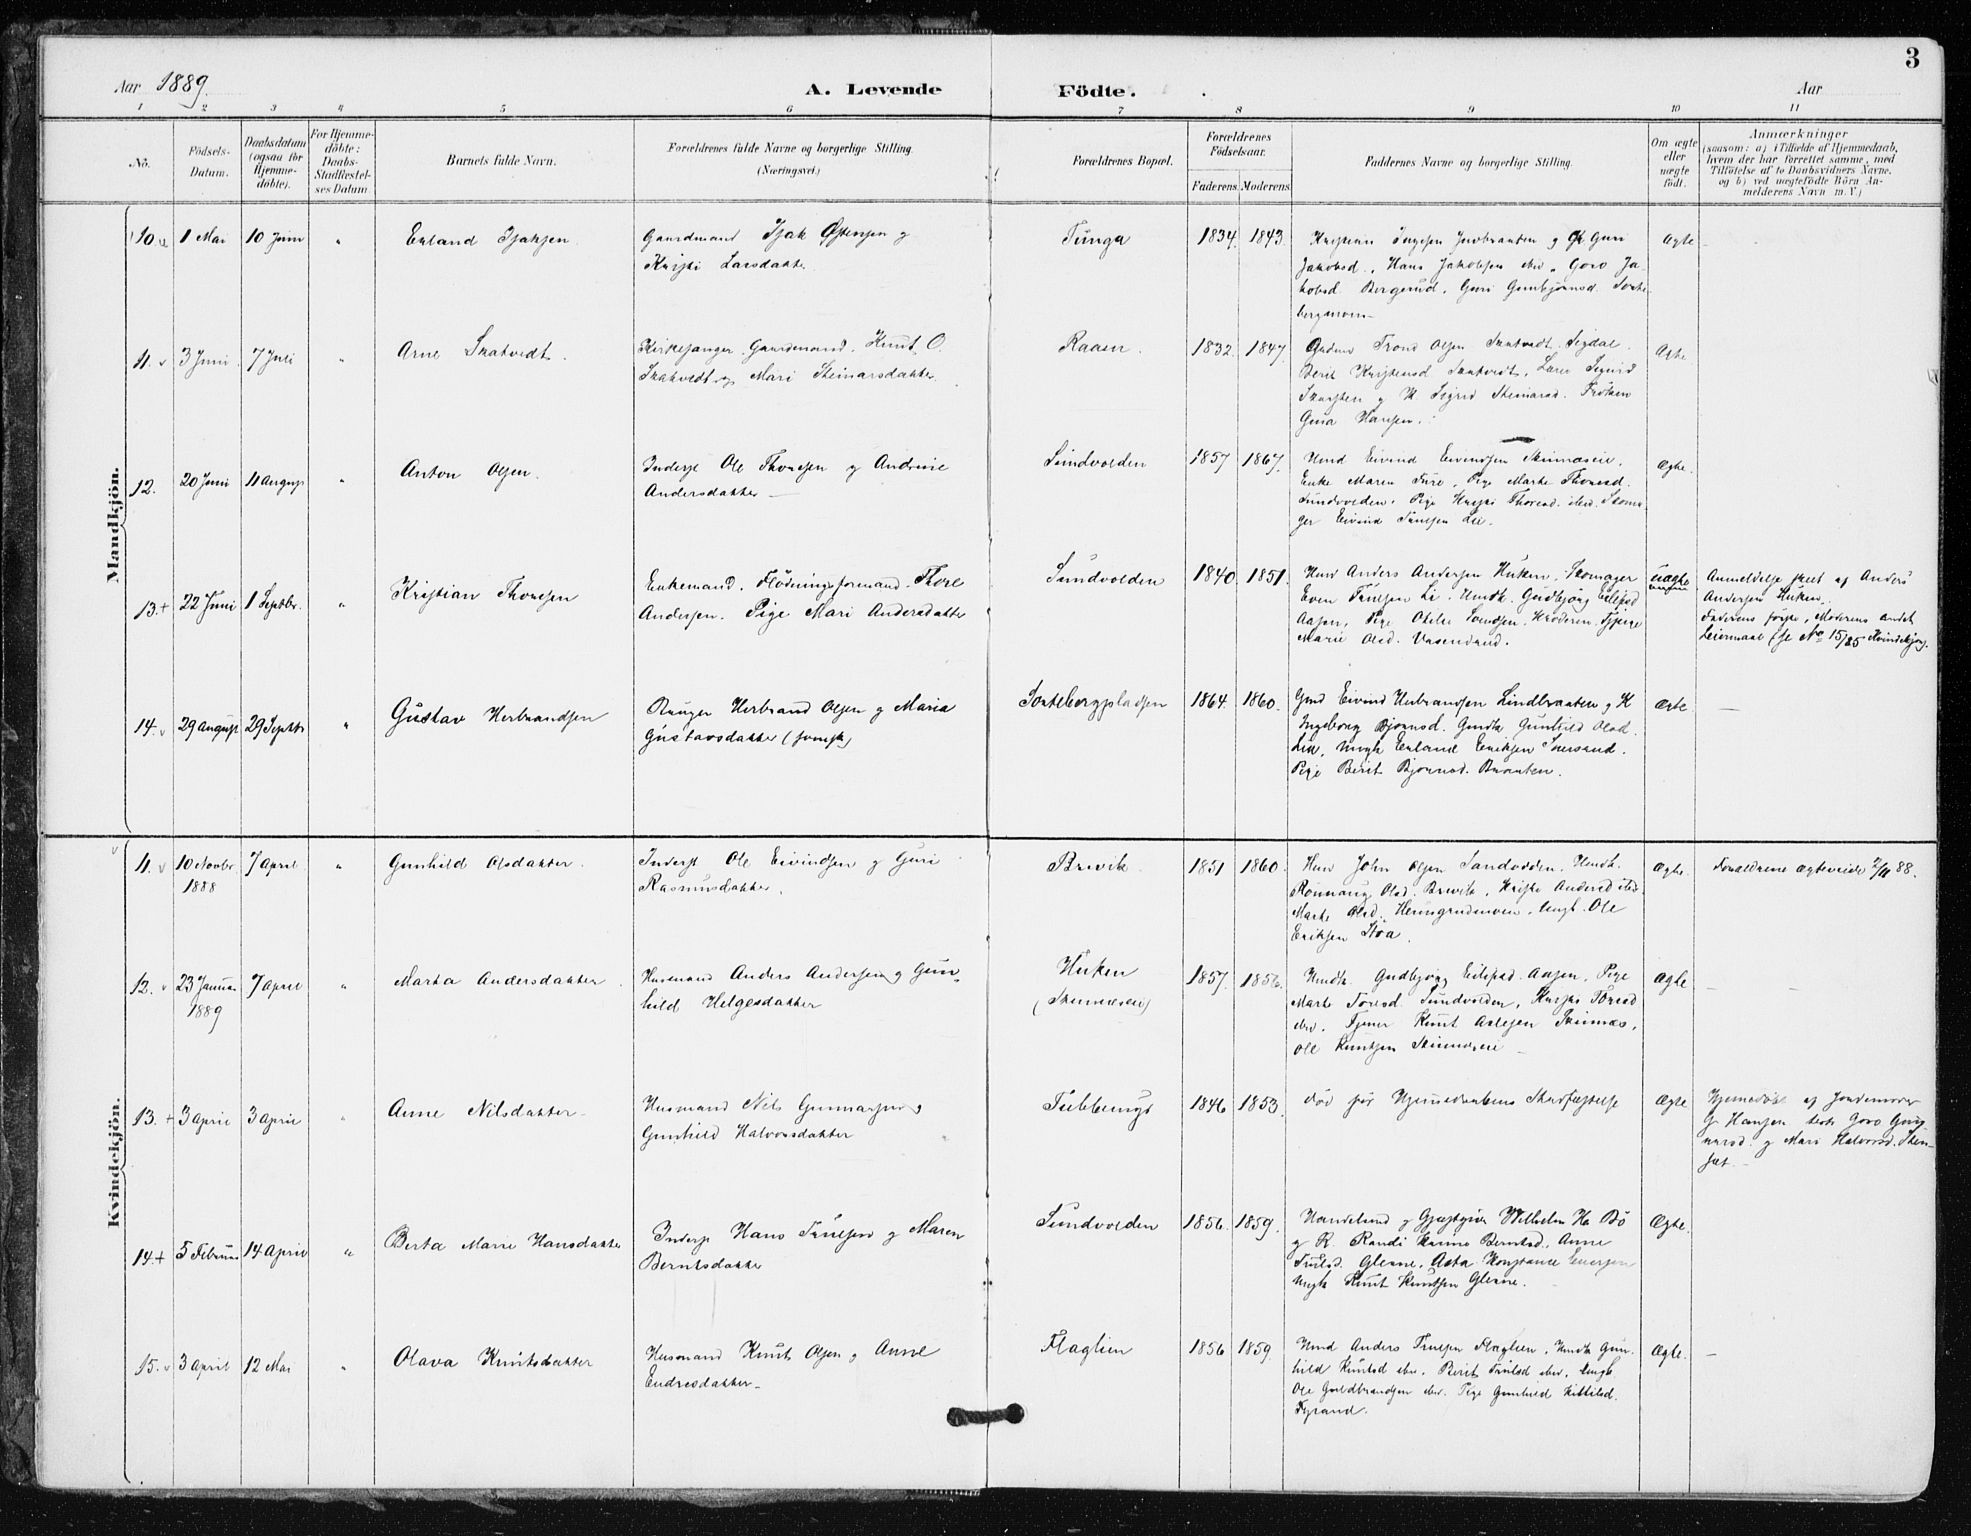 3
Aar 1889.
A. Levende Födte.
Aar
1 2 3 4 5 6 7 8 9 10 11
Nö.
Födsels-Datum.
Daabsdatum (ogsaa for Hjemme-döbte).
For Hjemme-döbte: Daabs-Stadfæstel-ses Datum
Barnets fulde Navn.
Forældrenes fulde Navne og borgerlige Stilling. (Næringsvei.)
Forældrenes Bopæl.
Forældrenes Födselsaar.
Faderens. Moderens.
Faddernes Navne og borgerlig Stilling.
Om ægte eller uægte födt.
Anmærkninger
(saasom: a) i Tilfælde af Hjemmedaab,
hvem der har forrettet samme, med
Tilföielse af to Daabsvidners Navne,
og b) ved uægtefödte Börn An-
melderens Navn m. V.)
Mandkjön.
10. 1 Mai 10 Juni " Erland Isaksen Gaardmand Isak Østensen og
Kristi Larsdatter.
Tunga 1834. 1843.
Jakobsd., Hans Jakobsen ibd., Goro Ja-
kobsd. Bergerud, Guri Gunbjørnsd. Sorte-
bergmoen
Ægte
11. 3 Juni 7 Juli " Arne Skatvedt. Kirkesanger Gaardmand Knut O.
Skatvedt og Mari Steinarsdatter
Raaen. 1832. 1847.
Trond Olsen Skatvedt Sigdal.
Berit Kristensd Skatvedt, Lærer Sigurd
og K. Sigrid Steinarsd. Frøken
Gina Hansen.
Ægte
12. 20 Juni 11 August " Anton Olsen. Inderst Ole Thoresen og Andrine
Andersdatter
Sundvolden 1857 1867.
Hmd Eivind Eivindsen Skinnæseie,
Enke Maren Ture, Pige Marte Thoresd.
Sundvolden, Pige Kristi Thoresd. ibd. Skoma-
ger Eivind Trulsen Lie.
Ægte.
13. + 22 Juni 1 Septbr. " Kristian Thoresen Enkemand, Flødningsformand Thore
Andersen. Pige Mari Andersdatter
Sundvolden 1840. 1851.
Hmd Anders Andersen Huken, Skomager
Even Trulsen Li. Hmdk. Gudbjørg Eilefsd
Aasen, Pige Otelie Svendsen, Krøderen, Tjpige
Marie Olsd. Vasendrud.
Uægte
Anmeldelse skeet af Anders
Andersen Huken.
Faderens første, Moderens andet
Leiermaal (se No 15/85 Kvindekjøn).
14. 29 August 29 Septbr " Gustav Herbrandsen Bruger Herbrand Olsen og Maria
Gustavsdatter (svensk)
Sortebergpladsen 1864. 1860.
Gmd Eivind Herbrandsen Lindbraaten og K
Ingeborg Bjørnsd. Gmdk Gunhild Olsd.
Lia, Ungk Erland Eriksen
Pige Berit Bjørnsd. Braaten.
Ægte
Kvindekjön.
11. 10 Novbr. 1888 7 April " Gunhild Olsdatter. Inderst Ole Eivindsen og Guri
Rasmusdatter.
Brevik. 1851 1860.
Hmd John Olsen Sandvolden. Hmdk.
Rønnaug Olsd. Brevik, Kristi Andersd ibd.
Marte Olsd. Ungk. Ole
Eriksen Stoa.
Ægte.
Forældrene ægteviede 2/11 88.
12. 23 Januar 1889 7 April " Marta Andersdatter Husmand Anders Andersen og Gun-
hild Helgesdatter
Huken (Skinnæseie) 1857. 1856.
Hmdk. Gudbjørg Eilefsd. Aasen, Pige
Marte Toresd. Sundvolden, Kristi Toresd
ibd. Tjener Knut Aslesen Skinnæs,
Ole Knutsen Skinnæseie
Ægte
13. + 3 April 3 April " Anne Nilsdatter Husmand Nils Gunnarsen og
Gunhild Halvorsdatter
1846 1853.
død før Hjemmedaabens Stadfæstelse
Ægte
Hjemmedøbt af Jordemoder
G. Hansen, Goro Gun-
narsd. og Mari Halvorsd. Sten-
set.
14. + 5 Februar 14 April " Berta Marie Hansdatter Inderst Hans Trulsen og Maren
Berntsdatter
Sundvolden 1856. 1859.
Handelsmd og Gjæstgiver Wilhelm H. Bø
og K. Randi Berntsd. Anne
Trulsd. Glesne. Asta Konstance Eversen
Ungk Knut Knutsen Glesne.
Ægte.
15. 3 April 12 Mai " Olava Knutsdatter Husmand Knut Olsen og Anne
Endresdatter
Flaglien 1856 1859.
Hmd Anders Trulsen Flaglien, Hmdk Gun-
hild Knutsd ibd. Berit Trulsd ibd. Ungk
Ole Guldbrandsen ibd. Pige Gunhild Kittilsd.
Fyrand.
Ægte.